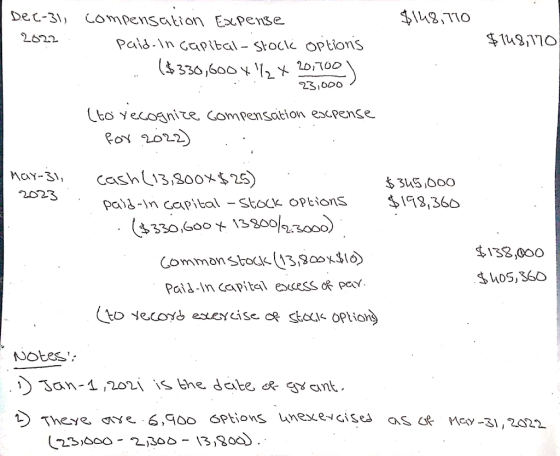 Dec-31, Compensation Expense $148,770
2022 Paid-In Capital - Stock Options $148,770
($330,600 x 1/2 x 20,700/23,000)
(to recognize compensation expense
for 2022)
Mar-31, Cash (13,800x$25) $345,000
2023 Paid-in Capital - Stock Options $198,360
($330,600 x 13800/23000)
Common Stock (13,800x$10) $138,000
Paid-In Capital excess of par. $405,360
(to record exercise of stock option)
Notes:
1) Jan-1, 2021 is the date of grant.
2) There are 6,900 options unexercised as of Mar-31, 2022
(23,000 - 2,300 - 13,800).